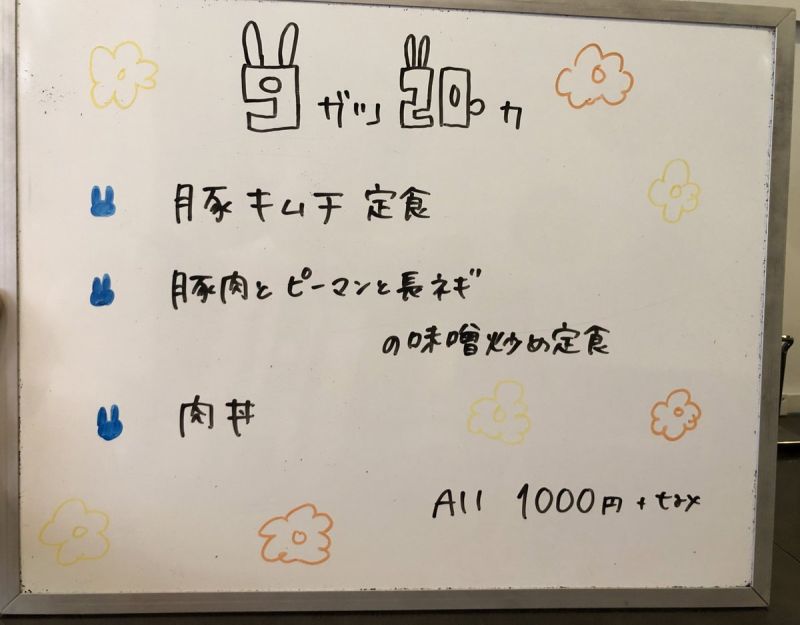 9ガツ20カ
豚キムチ定食
豚肉とピーマンと長ネギ
の味噌炒め定食
肉丼
All 1000円+tax